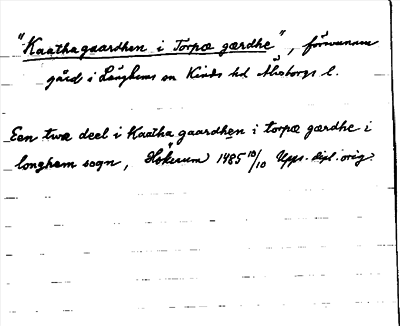 "Kaathagaardhen i Torpæ gærdhe", försvunnen
gård i Länghems sn Kinds hd Älvsborgs l.
Een twæ deel i Kaatha gaardhen i torpæ gærdhe i
longhem sogn, Hökerum 1485 10/10 Upps. dipl. orig.